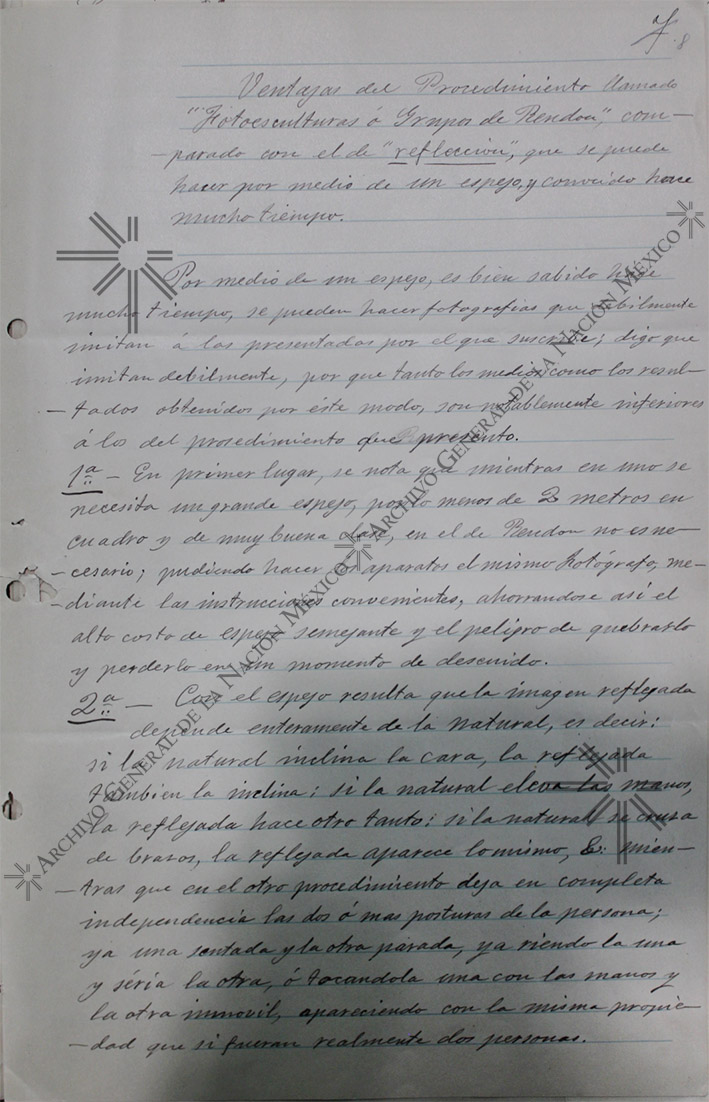 7.8
Ventajas del Procedimiento llamado
"Fotoesculturas ó Grupos de Rendon", com-
-parado con el de "reflección", que se puede
hacer por medio de un espejo, y conocido hace
mucho tiempo.
Por medio de un espejo, es bien sabido hace
mucho tiempo, se pueden hacer fotografias que debilmente
imitan á las presentadas por el que suscribe; digo que
imitan debilmente, por que tanto los medios como los resul-
-tados obtenidos por éste modo, son notablemente inferiores
á los del procedimiento que presento.
1ª — En primer lugar, se nota que mientras en uno se
necesita un grande espejo, por lo menos de 2 metros en
cuadro y de muy buena clase, en el de Rendon no es ne-
-cesario; pudiendo hacer los aparatos el mismo fotógrafo, me-
-diante las instrucciones convenientes, ahorrandose así el
alto costo de espejo semejante y el peligro de quebrarlo
y perderlo en un momento de descuido.
2ª — Con el espejo resulta que la imagen reflejada
depende enteramente de la natural, es decir:
si la natural inclina la cara, la reflejada
tambien la inclina: si la natural eleva las manos,
la reflejada hace otro tanto: si la natural se cruza
de brasos, la reflejada aparece lo mismo, &: mien-
-tras que en el otro procedimiento deja en completa
independencia las dos ó mas posturas de la persona;
ya una sentada y la otra parada, ya riendo la una
y séria la otra, ó tocandola una con las manos y
la otra inmovil, apareciendo con la misma propie-
-dad que si fueran realmente dos personas.
ARCHIVO GENERAL DE LA NACIÓN MÉXICO
ARCHIVO GENERAL DE LA NACIÓN MÉXICO